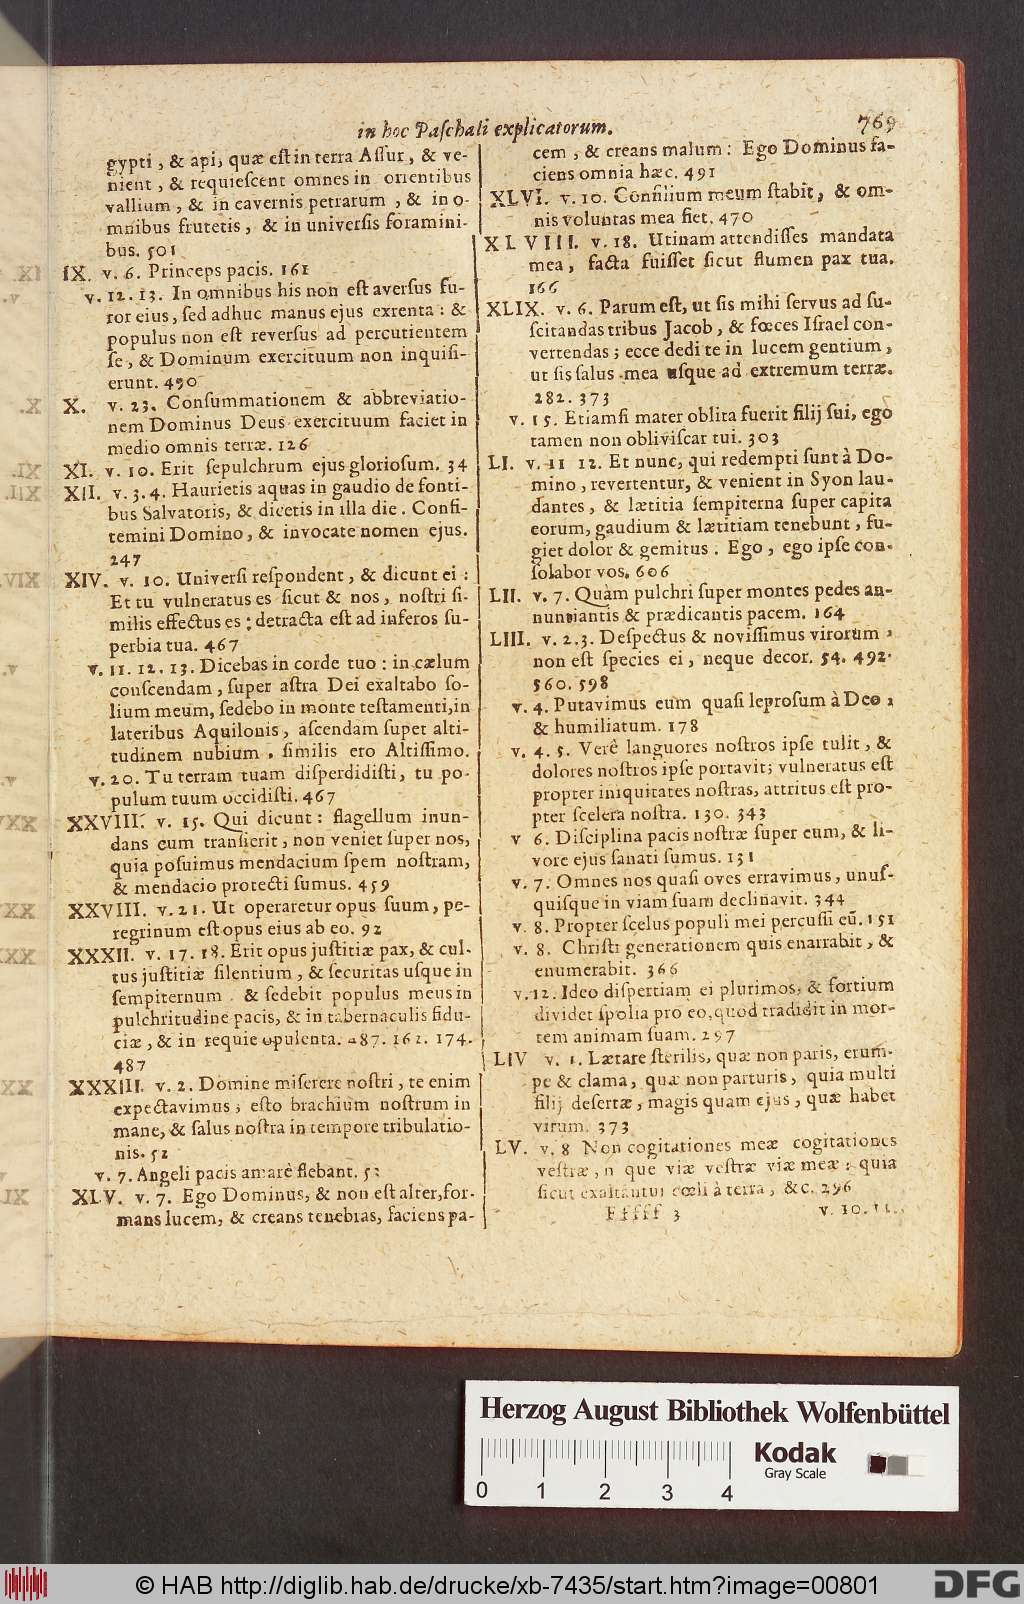 in hoc Paſchali explicatorum. 769
gypti, & api, quæ eſt in terra Aſſur, & ve-
nient, & requieſcent omnes in orientibus
vallium, & in cavernis petrarum, & in o-
mnibus frutetis, & in univerſis foramini-
bus. 501
IX. v. 6. Princeps pacis. 161
v. 12. 13. In omnibus his non eſt averſus fu-
ror eius, ſed adhuc manus ejus exrenta: &
populus non eſt reverſus ad percutientem
ſe, & Dominum exercituum non inquiſi-
erunt. 490
X. v. 23. Conſummationem & abbreviatio-
nem Dominus Deus exercituum faciet in
medio omnis terræ. 126
XI. v. 10. Erit ſepulchrum ejus glorioſum. 34
XII. v. 3. 4. Haurietis aquas in gaudio de fonti-
bus Salvatoris, & dicetis in illa die. Confi-
temini Domino, & invocate nomen ejus.
247
XIV. v. 10. Univerſi reſpondent, & dicunt ei:
Et tu vulneratus es ſicut & nos, noſtri ſi-
milis effectus es: detracta eſt ad inferos ſu-
perbia tua. 467
v. 11. 12. 13. Dicebas in corde tuo: in cælum
conſcendam, ſuper aſtra Dei exaltabo ſo-
lium meum, ſedebo in monte teſtamenti, in
lateribus Aquilonis, aſcendam ſuper alti-
tudinem nubium. ſimilis ero Altiſſimo.
v. 20. Tu terram tuam diſperdidiſti, tu po-
pulum tuum occidiſti. 467
XXVIII. v. 15. Qui dicunt: flagellum inun-
dans cum tranſierit, non veniet ſuper nos,
quia poſuimus mendacium ſpem noſtram,
& mendacio protecti ſumus. 459
XXVIII. v. 21. Ut operaretur opus ſuum, pe-
regrinum eſt opus eius ab eo. 92
XXXII. v. 17. 18. Erit opus juſtitiæ pax, & cul-
tus juſtitiæ ſilentium, & ſecuritas uſque in
ſempiternum. & ſedebit populus meus in
pulchritudine pacis, & in tabernaculis fidu-
ciæ, & in requie opulenta. 87. 162. 174.
487
XXXIII. v. 2. Domine miſerere noſtri, te enim
expectavimus; eſto brachium noſtrum in
mane, & ſalus noſtra in tempore tribulatio-
nis. 52
v. 7. Angeli pacis amarè flebant. 52
XLV. v. 7. Ego Dominus, & non eſt alter, for-
mans lucem, & creans tenebras, faciens pa-
cem, & creans malum: Ego Dominus fa-
ciens omnia hæc. 491
XLVI. v. 10. Conſilium meum ſtabit, & om-
nis voluntas mea fiet. 470
XLVIII. v. 18. Utinam attendiſſes mandata
mea, facta fuiſſet ſicut flumen pax tua.
166
XLIX. v. 6. Parum eſt, ut ſis mihi ſervus ad ſu-
ſcitandas tribus Jacob, & fœces Iſrael con-
vertendas; ecce dedi te in lucem gentium,
ut ſis ſalus mea uſque ad extremum terræ.
282. 373
v. 15. Etiamſi mater oblita fuerit filij ſui, ego
tamen non obliviſcar tui. 303
LI. v. 11 12. Et nunc, qui redempti ſunt à Do-
mino, revertentur, & venient in Syon lau-
dantes, & lætitia ſempiterna ſuper capita
eorum, gaudium & lætitiam tenebunt, fu-
giet dolor & gemitus. Ego, ego ipſe con-
ſolabor vos. 606
LII. v. 7. Quàm pulchri ſuper montes pedes an-
nunciantis & prædicantis pacem. 164
LIII. v. 2. 3. Deſpectus & noviſſimus virorum,
non eſt ſpecies ei, neque decor. 54. 492.
560. 598
v. 4. Putavimus eum quaſi leproſum à Deo,
& humiliatum. 178
v. 4. 5. Verè languores noſtros ipſe tulit, &
dolores noſtros ipſe portavit; vulneratus eſt
propter iniquitates noſtras, attritus eſt pro-
pter ſcelera noſtra. 130. 343
v 6. Diſciplina pacis noſtræ ſuper eum, & li-
vore ejus ſanati ſumus. 131
v. 7. Omnes nos quaſi oves erravimus, unuſ-
quiſque in viam ſuam declinavit. 344
v. 8. Propter ſcelus populi mei percuſſi eũ. 151
v. 8. Chriſti generationem quis enarrabit, &
enumerabit. 366
v. 12. Ideo diſpertiam ei plurimos, & fortium
dividet ſpolia pro eo, quod tradidit in mor-
tem animam ſuam. 297
LIV v. 1. Lætare ſterilis, quæ non paris, erum-
pe & clama, quæ non parturis, quia multi
filij deſertæ, magis quam ejus, quæ habet
virum. 373
LV. v. 8 Non cogitationes meæ cogitationes
veſtræ, n que viæ veſtræ viæ meæ: quia
ſicut exaltantur cœli à terra, &c. 296
Fffff 3 v. 10. 11.
Herzog August Bibliothek Wolfenbüttel
Kodak
Gray Scale
0 1 2 3 4
© HAB http://diglib.hab.de/drucke/xb-7435/start.htm?image=00801
DFG